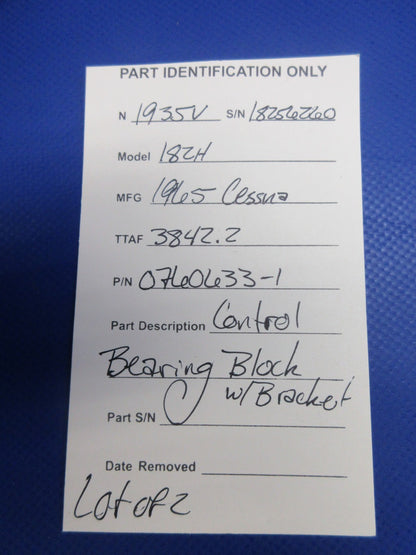 PART IDENTIFICATION ONLY
N 1935V S/N 18256260
Model 182H
MFG 1965 Cessna
TTAF 3842.2
P/N 0760633-1
Part Description Control
Bearing Block
w/Bracket
Part S/N
Date Removed
Lot of 2